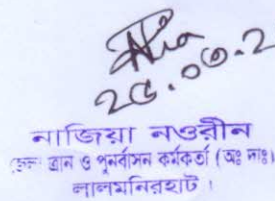 ২৫.০৩.২
নাজিয়া নওরীন
জেলা ত্রান ও পুনর্বাসন কর্মকর্তা (অঃ দাঃ)
লালমনিরহাট।